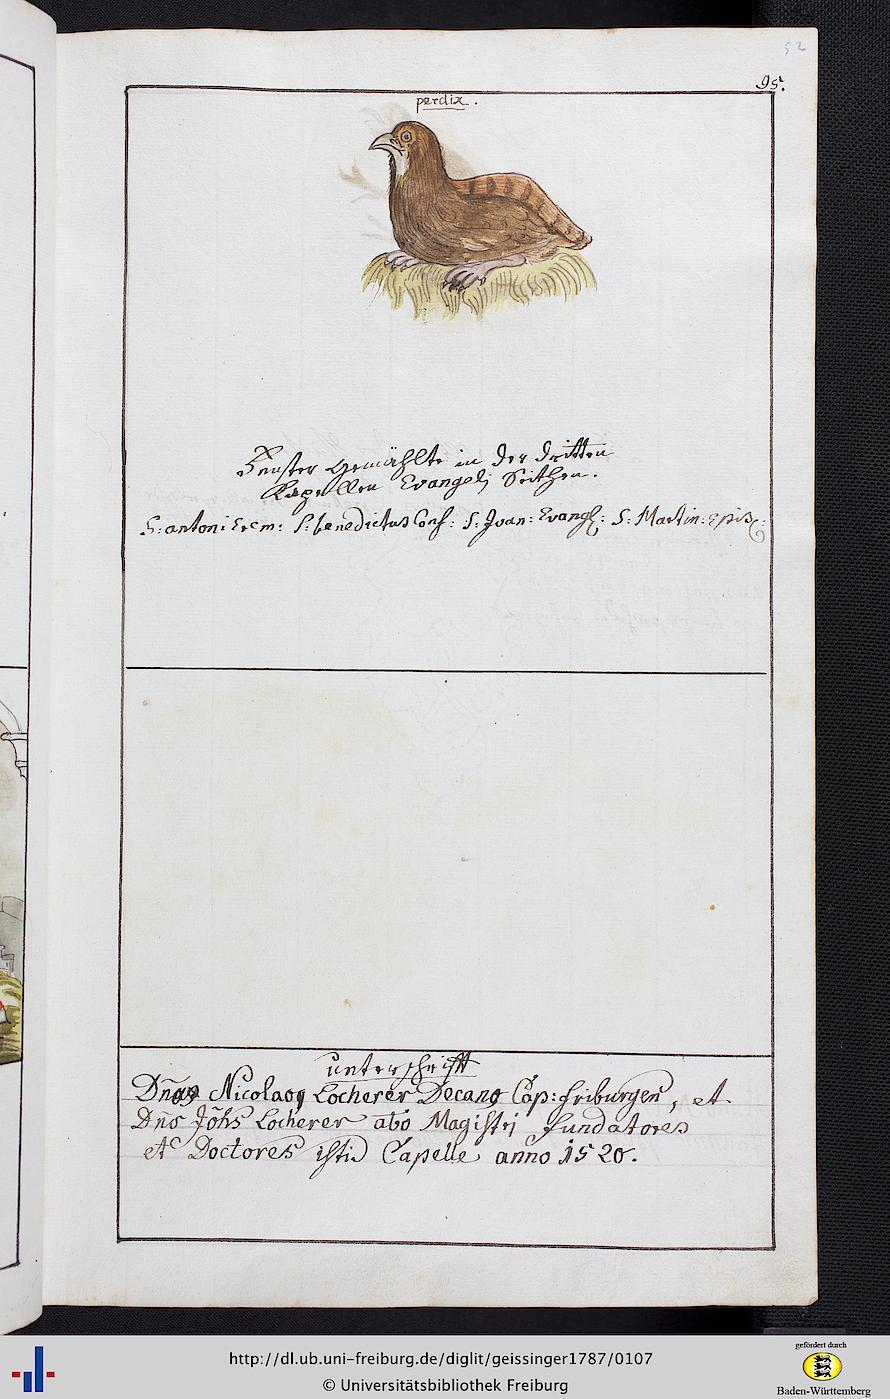 52
95.
perdix.
Fenster Gemählte in der dritten
Kapellen Evangelj Seithen.
S: antoni Erem: S: benedictus Conf: S: Joan: Evangl: S: Martin: Episc:
unterschrifft
Dños Nicolaos Locherer Decano Cap: friburgen, et
Dño Johs Locherer abo Magistrj fundatores
et Doctores istis Capelle anno 1520.
http://dl.ub.uni-freiburg.de/diglit/geissinger1787/0107
© Universitätsbibliothek Freiburg
gefördert durch
Baden-Württemberg